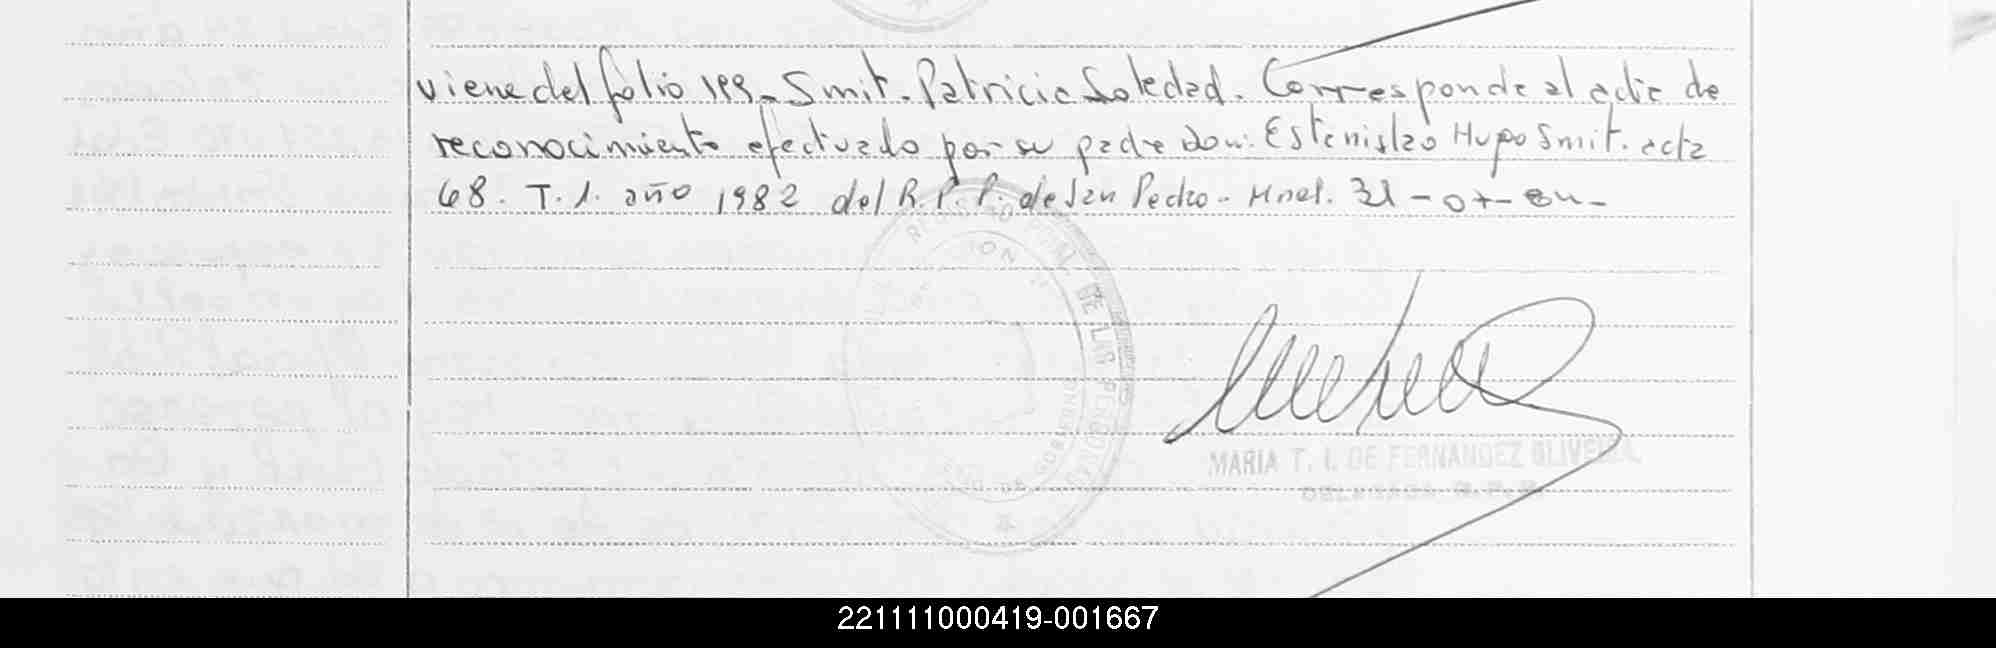 viene del folio 199_ Smit. Patricia Soledad. Corresponde al acta de
reconocimiento efectuado por su padre don: Estanislao Hugo Smit. acta
68. T. 1. año 1982 del R. P. P. de San Pedro - Mnes. 31 - 07 - 84 -
DE LAS PERSONAS
GOBIERNO
MARIA T. I. DE FERNANDEZ OLIVEIRA
DELEGADA R. P. P.
221111000419-001667